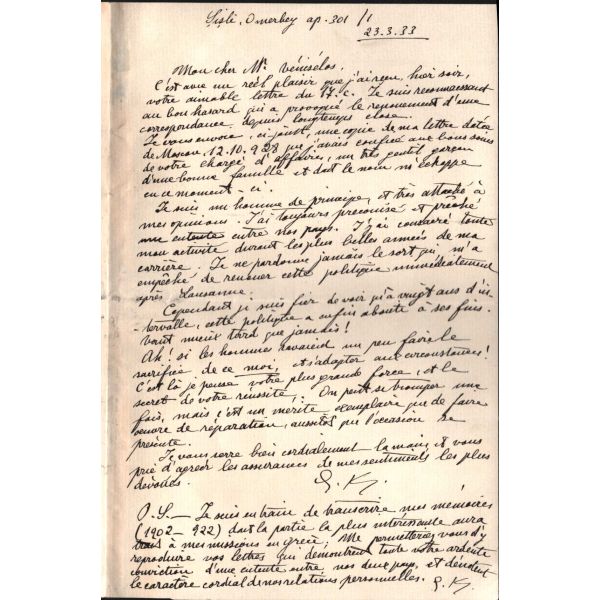 Şişli, Omerbey ap. 301/1
23.3.33
Mon cher Mr. Vénisélos,
C'est avec un réel plaisir que j'ai reçu, hier soir,
votre aimable lettre du 17.c. Je suis reconnaissant
au bon hasard qui a provoqué le renouement d'une
correspondance depuis longtemps close.
Je vous envoie, ci joint, une copie de ma lettre datée
de Moscou 12.10.928 que j'avais confiée aux bons soins
de votre chargé d'affaires, un très gentil garçon
d'une bonne famille et dont le nom m'échappe
en ce moment-ci.
Je suis un homme de principe, et très attaché à
mes opinions. J'ai toujours préconisé et prêché
une entente entre nos pays. J'y ai consacré toute
mon activité durant les plus belles années de ma
carrière. Je ne pardonne jamais le sort qui m'a
empêché de renouer cette politique immédiatement
après Lausanne.
Cependant je suis fier de voir qu'à vingt ans d'in-
tervalle, cette politique a enfin abouti à ses fins.
Vaut mieux tard que jamais!
Ah! si les hommes savaient un peu faire le
sacrifice de ce moi, et s'adapter aux circonstances!
C'est là je pense votre plus grande force, et le
secret de votre réussite. On peut se tromper une
fois, mais c'est un mérite exemplaire que de faire
oeuvre de réparation, aussitôt que l'occasion se
présente.
Je vous serre bien cordialement la main, et vous
prie d'agréer les assurances de mes sentiments les plus
dévoués.
G. K.
P.S.— Je suis en train de transcrire mes mémoires
(1902–922) dont la partie la plus intéressante aura
trait à mes missions en grèce; Me permetteriez vous d'y
reproduire vos lettres qui démontrent toute votre ardente
conviction d'une entente entre nos deux pays, et
le caractère cordial de nos relations personnelles. G. K.